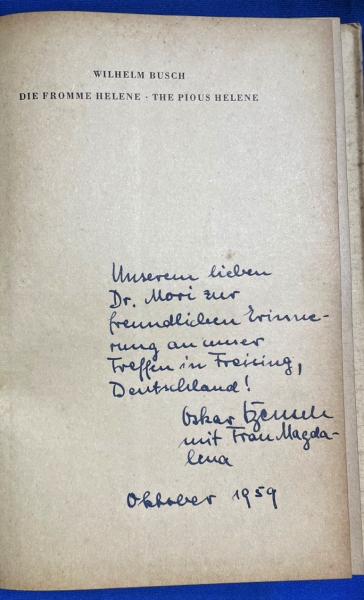 WILHELM BUSCH
DIE FROMME HELENE · THE PIOUS HELENE
Unserem lieben
Dr. Mori zur
freundlichen Erinne-
rung an unser
Treffen in Freising,
Deutschland!
Oskar
mit Frau Magda-
lena
Oktober 1959